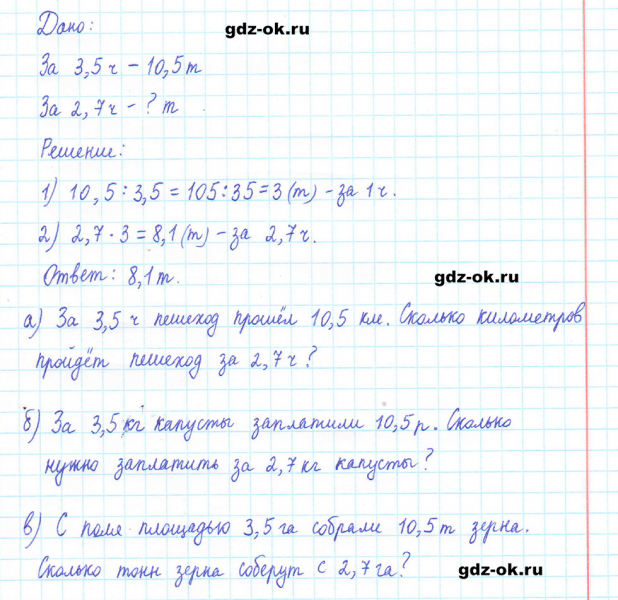 Дано: gdz-ok.ru
За 3,5 ч – 10,5 т
За 2,7 ч – ? т
Решение:
1) 10,5 : 3,5 = 105 : 35 = 3 (т) – за 1 ч.
2) 2,7 · 3 = 8,1 (т) – за 2,7 ч.
Ответ: 8,1 т. gdz-ok.ru
а) За 3,5 ч пешеход прошёл 10,5 км. Сколько километров
пройдёт пешеход за 2,7 ч?
б) За 3,5 кг капусты заплатили 10,5 р. Сколько
нужно заплатить за 2,7 кг капусты?
в) С поля площадью 3,5 га собрали 10,5 т зерна.
Сколько тонн зерна соберут с 2,7 га? gdz-ok.ru